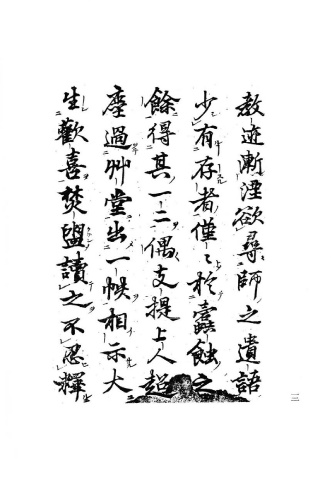 教迹漸湮欲尋師之遺語
少有存者僅〻於蠹蝕之
餘得其一二偶支提上人超
塵過艸堂出一帙相示大
生歡喜焚盥讀之不忍釋
三